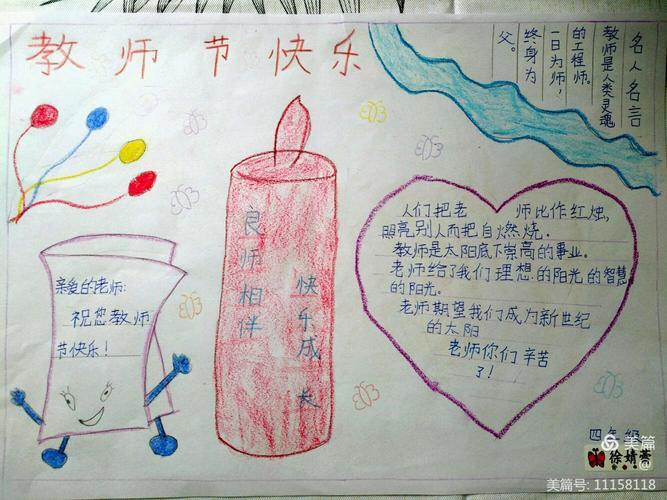 教师节快乐
名人名言
教师是人类灵魂
的工程师。
一日为师，
终身为
父。
亲爱的老师：
祝您教师
节快乐！
良师相伴
快乐成长
人们把老 师比作红烛，
照亮别人而把自燃烧。
教师是太阳底下崇高的事业。
老师给了我们理想的阳光的智慧
的阳光。
老师期望我们成为新世纪
的太阳
老师你们辛苦
了！
四年级
徐婧萱
美篇
美篇号: 11158118